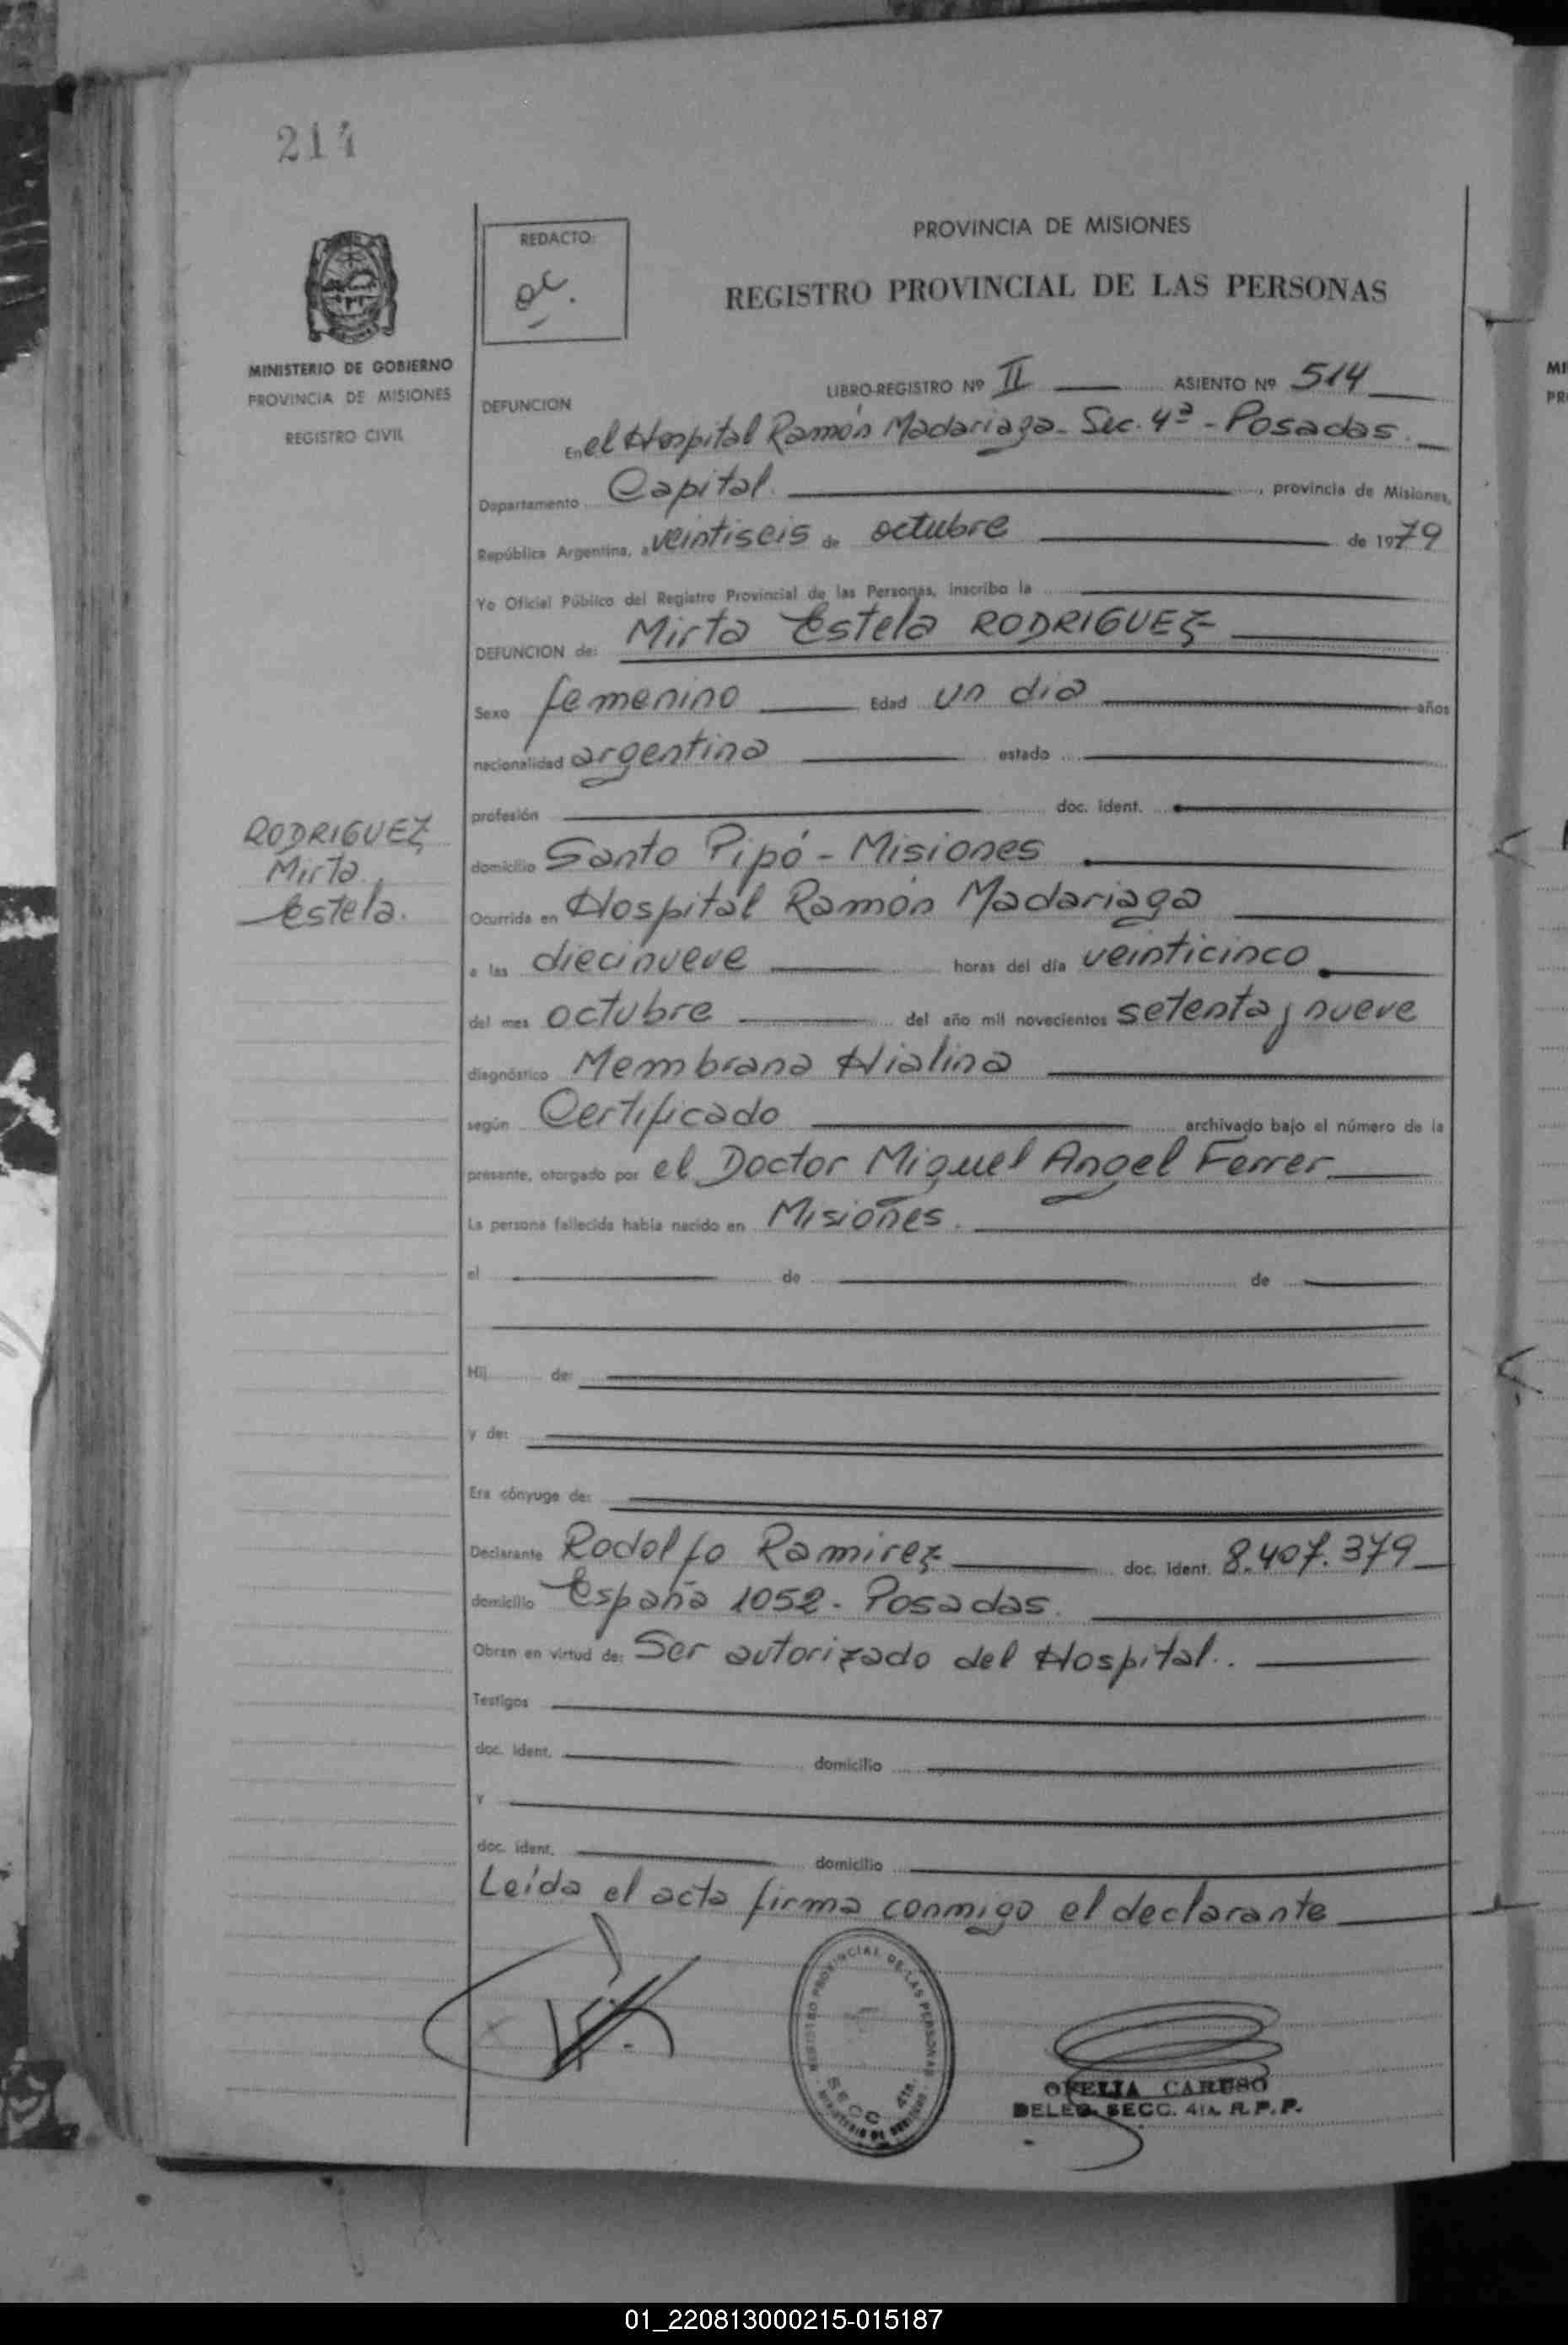 214
REDACTO:
PROVINCIA DE MISIONES
REGISTRO PROVINCIAL DE LAS PERSONAS
MINISTERIO DE GOBIERNO
PROVINCIA DE MISIONES
REGISTRO CIVIL
LIBRO-REGISTRO Nº II ASIENTO Nº 514
DEFUNCION
En el Hospital Ramón Madariaga - Sec. 4ª - Posadas.
Departamento Capital , provincia de Misiones,
República Argentina, a veintiseis de octubre de 1979
Yo Oficial Público del Registro Provincial de las Personas, inscribo la
DEFUNCION de: Mirta Estela RODRIGUEZ
Sexo femenino Edad un dia años
nacionalidad argentina estado
profesión doc. ident.
RODRIGUEZ
Mirta
Estela.
domicilio Santo Pipó - Misiones
Ocurrida en Hospital Ramón Madariaga
a las diecinueve horas del día veinticinco
del mes octubre del año mil novecientos setenta y nueve
diagnóstico Membrana Hialina
según Certificado archivado bajo el número de la
presente, otorgado por el Doctor Miguel Angel Ferrer
La persona fallecida había nacido en Misiones.
el de de
Hij de:
y de:
Era cónyuge de:
Declarante Rodolfo Ramirez doc. ident. 8.407.379
domicilio España 1052 - Posadas.
Obran en virtud de: Ser autorizado del Hospital..
Testigos
doc. ident. domicilio
y
doc. ident. domicilio
Leída el acta firma conmigo el declarante
REGISTRO PROVINCIAL DE LAS PERSONAS
SECC. 4ta.
OFELIA CARUSO
DELEG. SECC. 4ta. R.P.P.
MI
PR
01_220813000215-015187